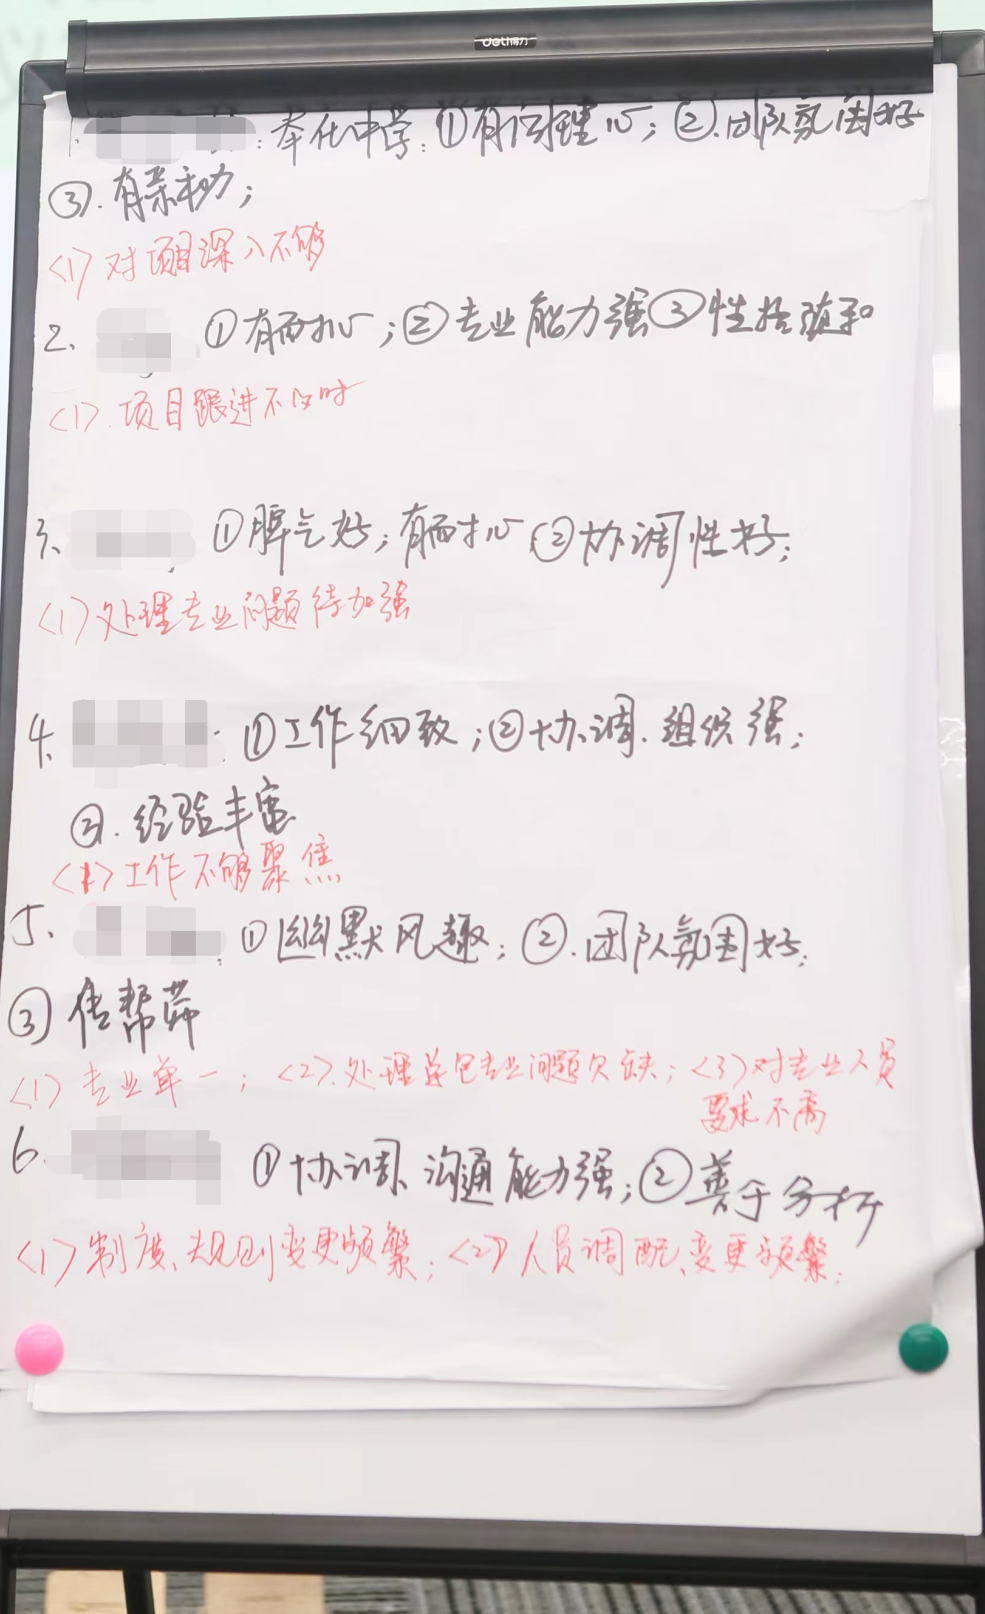 deli得力
1. : 奉化中学: ①有同理心; ②.团队氛围好
③. 有亲和力;
<1> 对项目深入不够
2、 ①有耐心; ②专业能力强③性格随和
<1>. 项目跟进不及时
3、 ①脾气好; 有耐心 ②协调性好;
<1> 处理专业问题待加强
4、 : ①工作细致; ②协调、组织强;
③. 经验丰富
<1> 工作不够聚焦
5、 ①幽默风趣; ②.团队氛围好;
③ 传帮
<1> 专业单一; <2>.处理总包专业问题欠缺; <3>对专业人员
要求不高
6. ①协调、沟通能力强; ②善于分析
<1> 制度、规则变更频繁; <2> 人员调配、变更频繁;